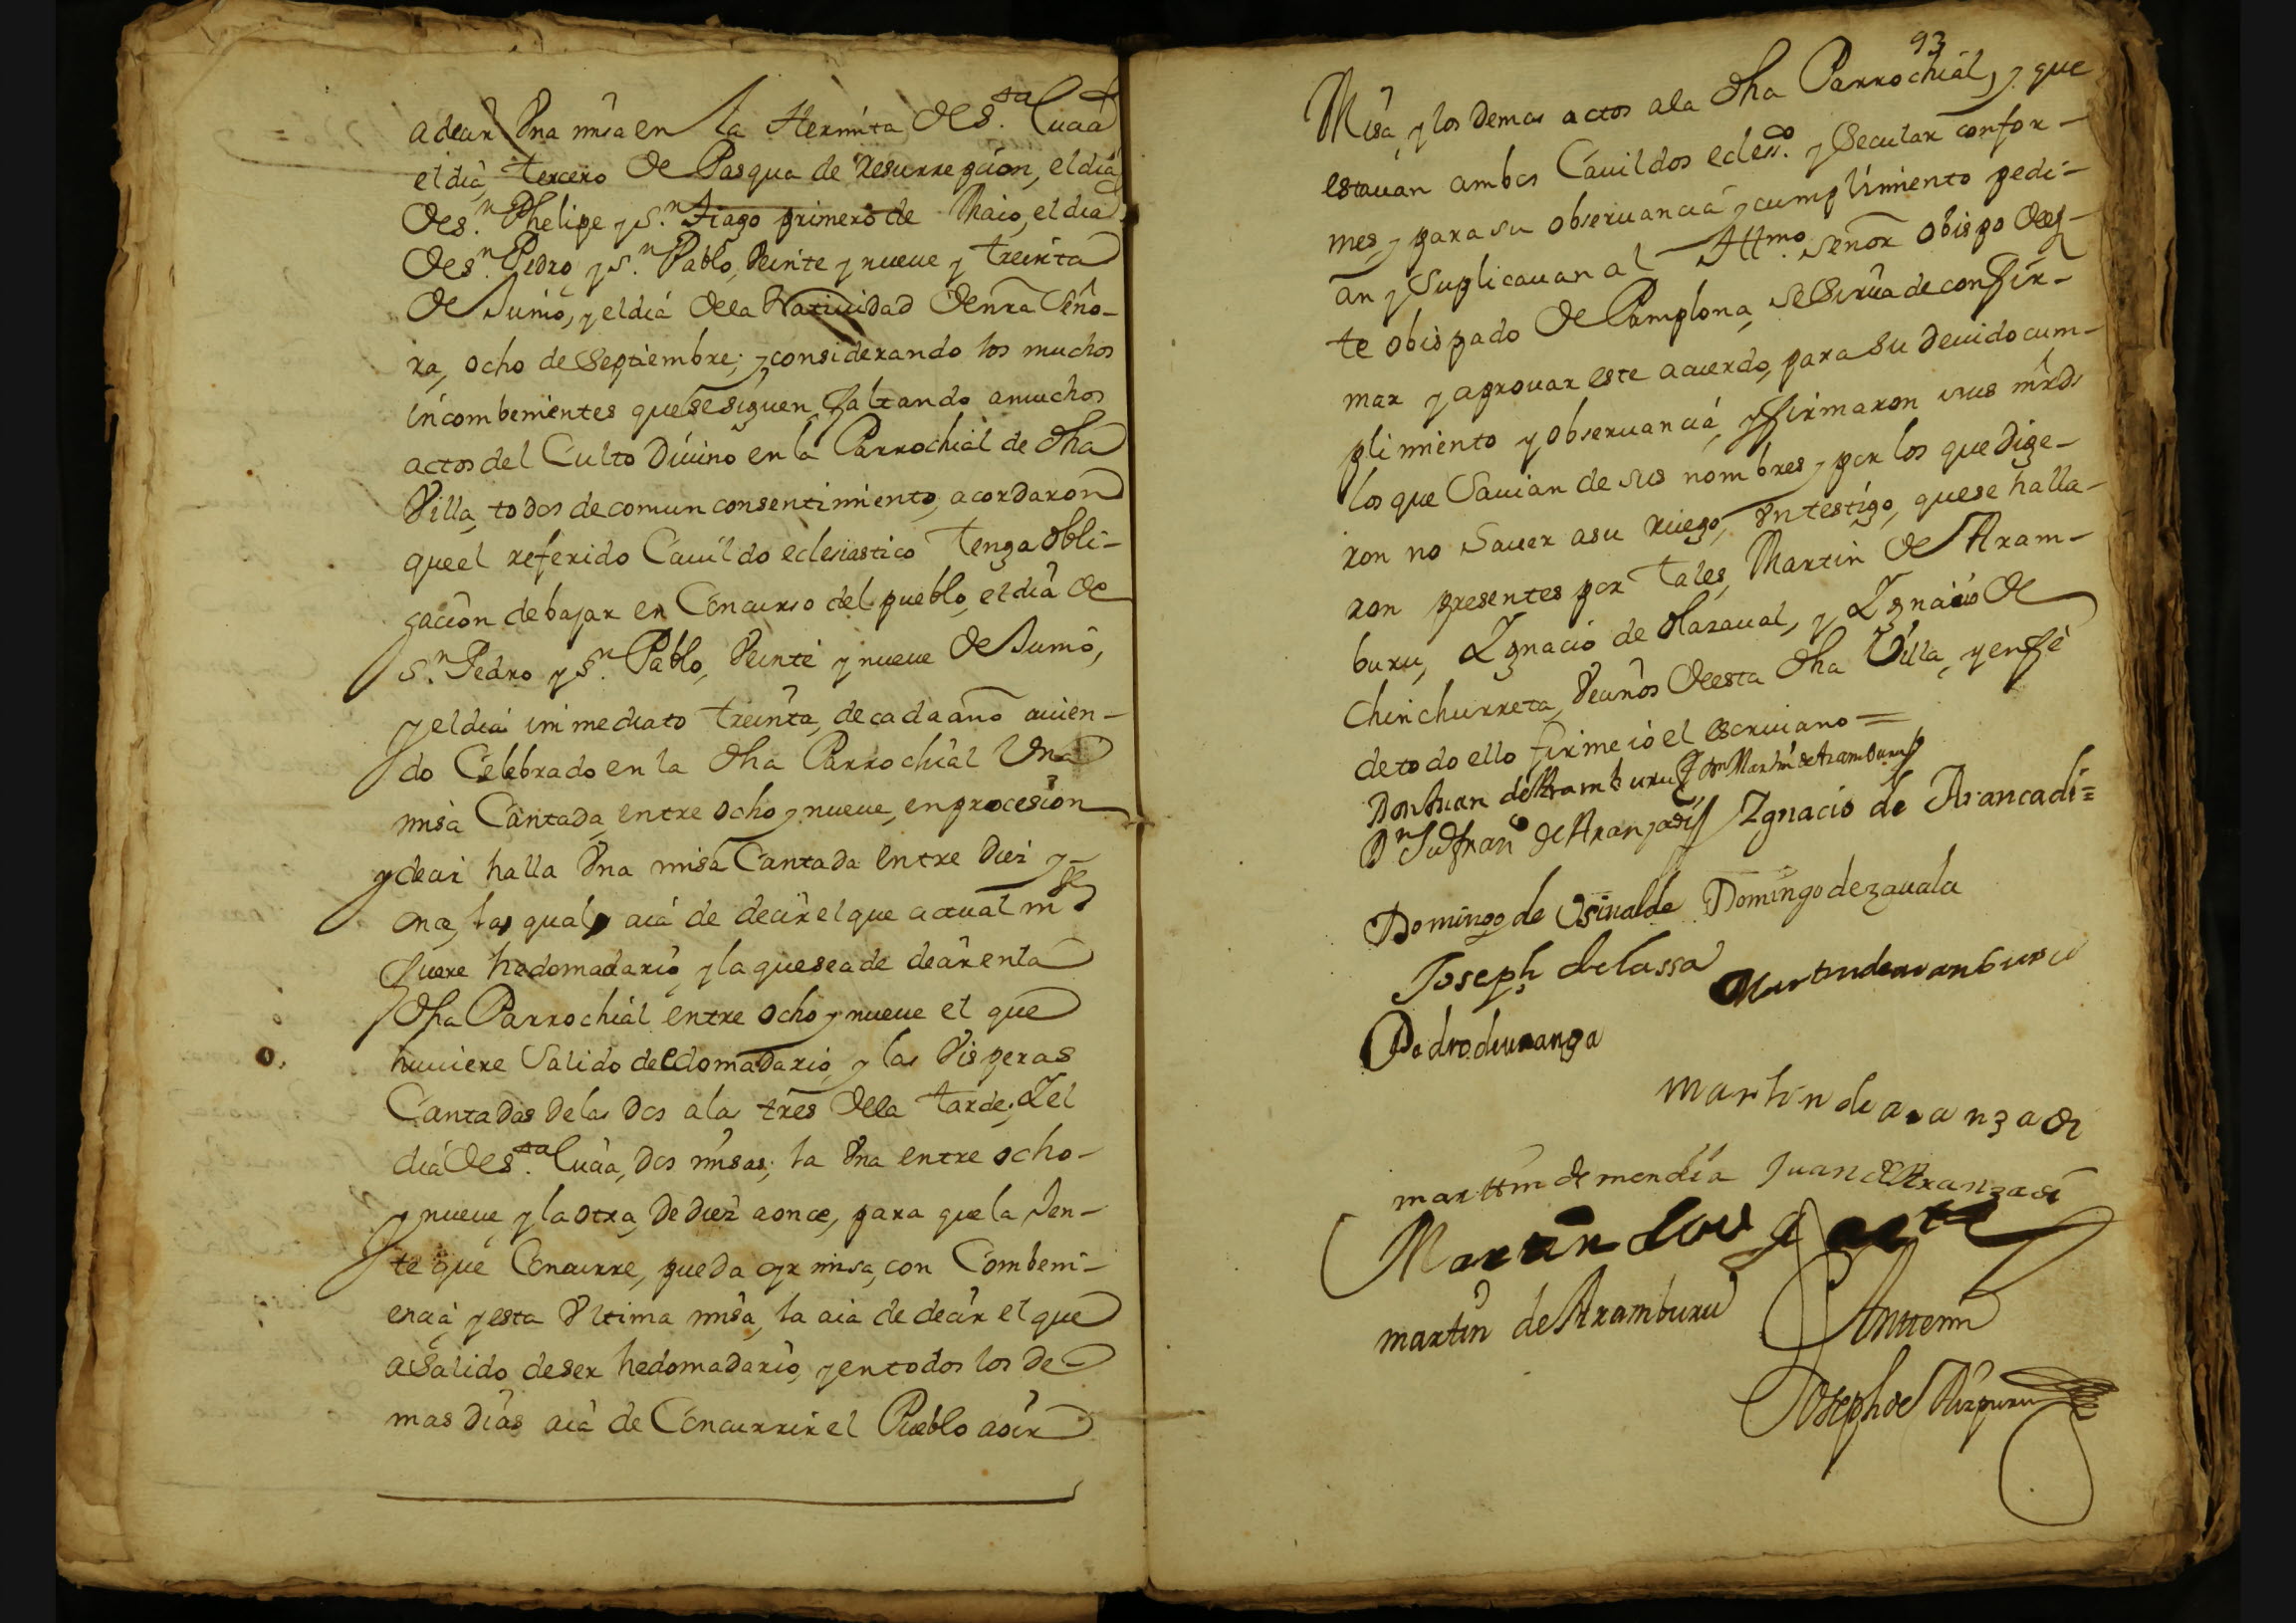 adecir Vna misa en la Hermita de S.ta Lucia
el dia tercero de Pasqua de Resurrepcion, el dia
de S.n Phelipe y S.n Tiago primero de Maio, el dia
de S.n Pedro y S.n Pablo, Veinte y nueue y treinta
de Junio, y el dia dela Natiuidad de nra Seño-
ra, ocho de Septiembre; y considerando los muchos
incombenientes que se siguen faltando a muchos
actos del Culto Diuino en la Parrochial de dha
Villa, todos de comun consentimiento, acordaron
que el referido Cauildo eclesiastico tenga obli-
gacion de bajar en Concurso del pueblo, el dia de
S.n Pedro y S.n Pablo, Veinte y nueue de Junio,
y el dia inmediato treinta, de cada año auien-
do Celebrado en la dha Parrochial Vna
misa Cantada, entre ocho y nueue, en procesion
y decir halla Vna misa Cantada entre diez y
once, la qual aia de decir el que actualm.te
fuere hedomadario, y la que sea de decir en la
dha Parrochial entre ocho y nueue el que
huuiere Salido de edomadario, y las Visperas
Cantadas de las dos a las tres dela tarde; Y el
dia de S.ta Lucia, dos misas; la Vna entre ocho-
y nueue, y la otra, de diez a once, para que la Jen-
te que Concurre, pueda oyr misa, con Combeni-
encia, y esta Vltima misa, la aia de decir el que
a Salido de ser hedomadario, y en todos los de
mas dias aia de Concurrir el Pueblo a oir
93
Misa, y los demas actos ala dha Parrochial, y que
estauan ambos Cauildos ecless.co y Secular confor-
mes, y para su obseruancia y cumplimiento pedi-
an y Suplicauan al Ill.mo Señor obispo de es-
te obispado de Pamplona, se Sirua de confir-
mar y aprouar este acuerdo, para su deuido cum-
plimiento y obseruancia, y firmaron sus mrds
los que Sauian de sus nombres, y por los que dige-
ron no Sauer a su ruego, Vn testigo, que se halla-
ron presentes por tales, Martin de Aram-
buru, Ygnacio de Olazaual, y Ygnacio de
Chinchurreta, Vecinos de esta dha Villa, y en fe
de todo ello firme io el escriuano =
Don Juan de Aramburu Dn Martin de Aramburu
Dn Ju Fran.co de Aranzadi Ygnacio de Arancadi=
Domingo de Vsiualde Domingo de zauala
Joseph de lassa Martin de aramburu
Pedro de uranga
Martin de aranzadi
martin de mendia Juan de Aranzadi
Martin
martin de Aramburu Antemi
Joseph de Aizpuru